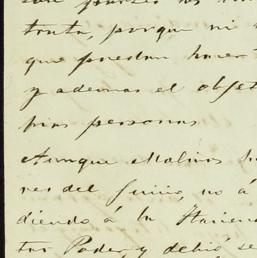 tanto, porque ni
que puedan hacer
y ademas el obje
pias personas
Aunque Molinos h
res del Juicio, no á
diendo á la Hacien
tos Poder, y debió se